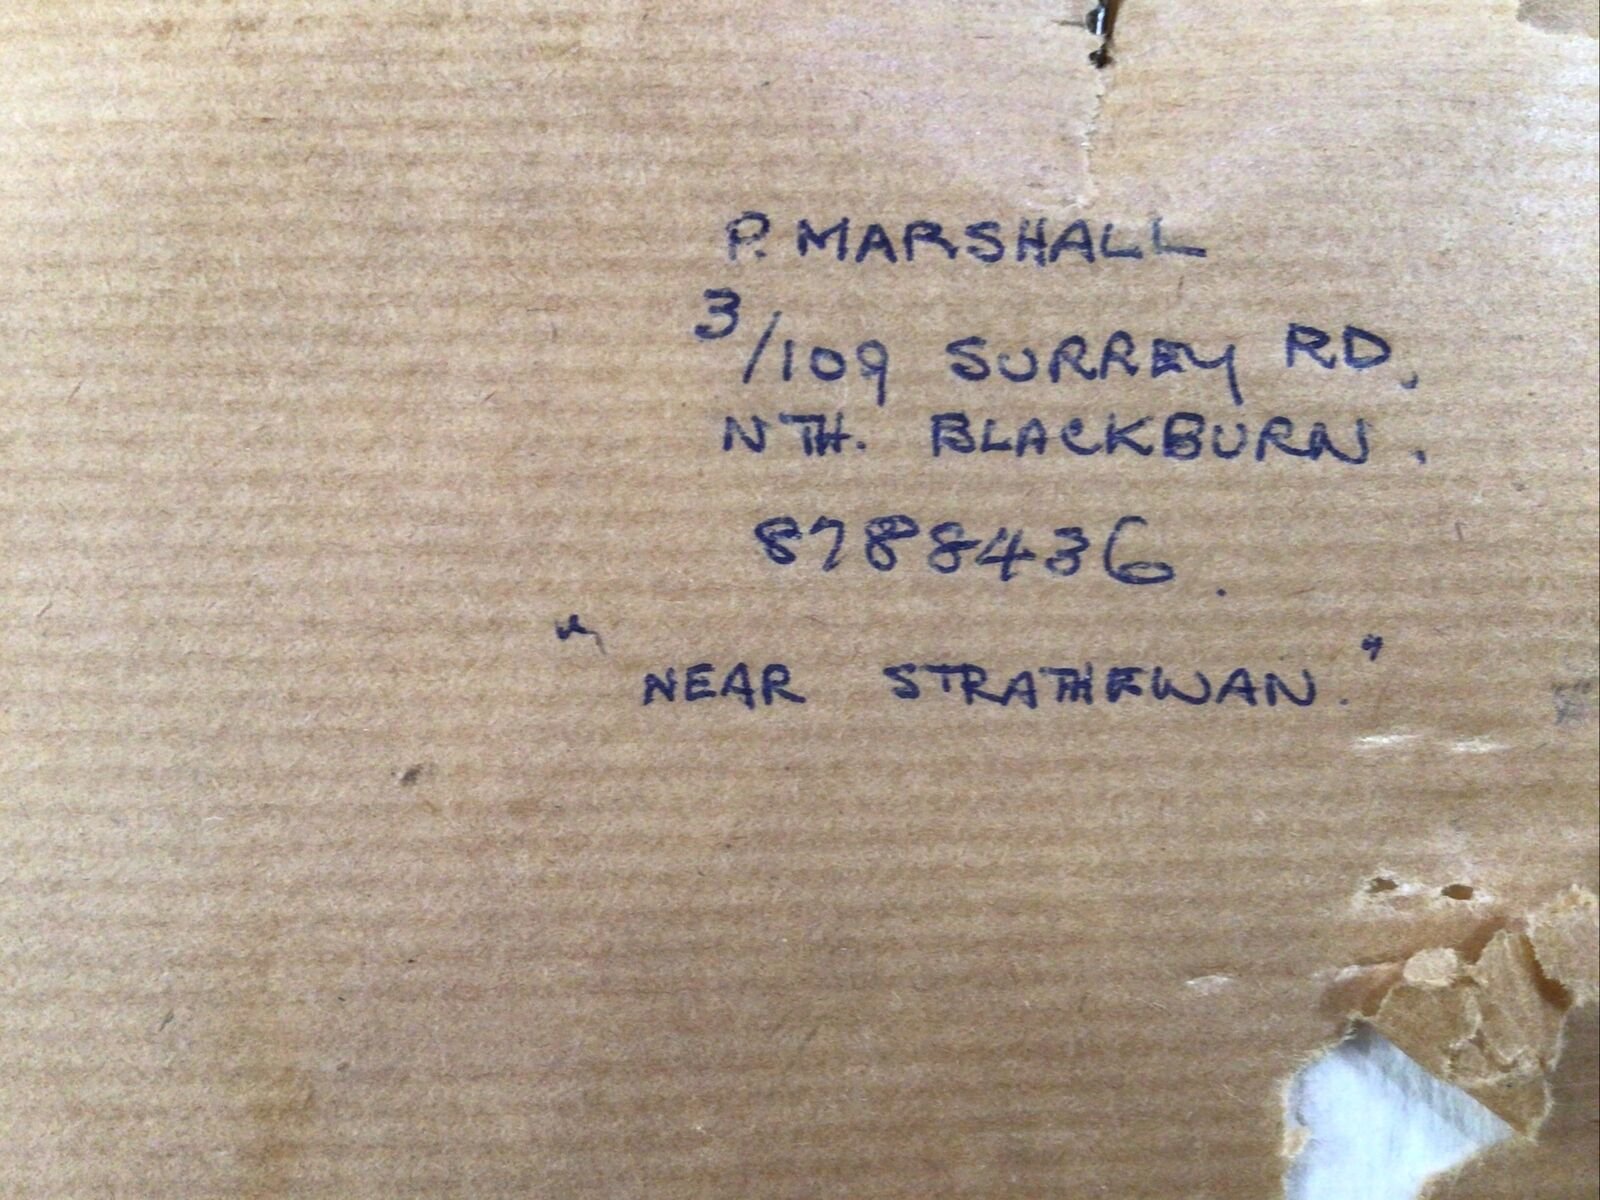 P. MARSHALL
3/109 SURREY RD,
NTH. BLACKBURN.
8788436.
"NEAR STRATHEWAN."